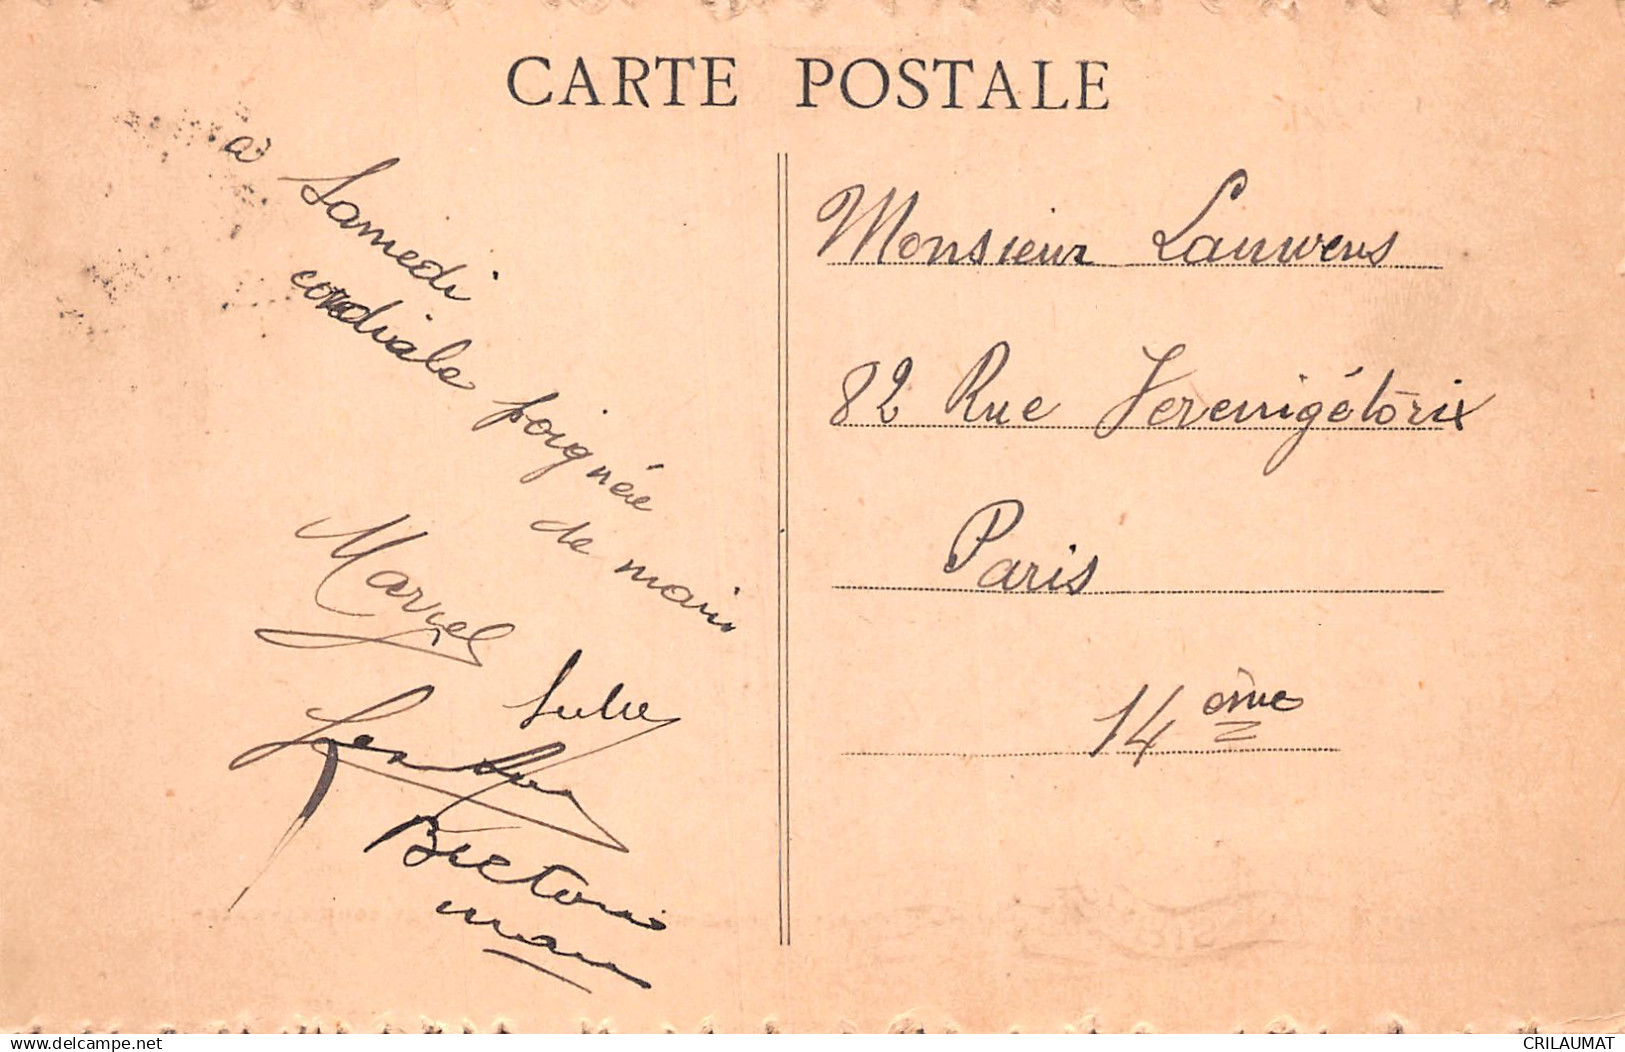 CARTE POSTALE
a Samedi
cordiale poignée
de main
Marcel
Monsieur Lauwens
82 Rue Vercingétorix
Paris
14 ème
delcampe.net
CRILAUMAT